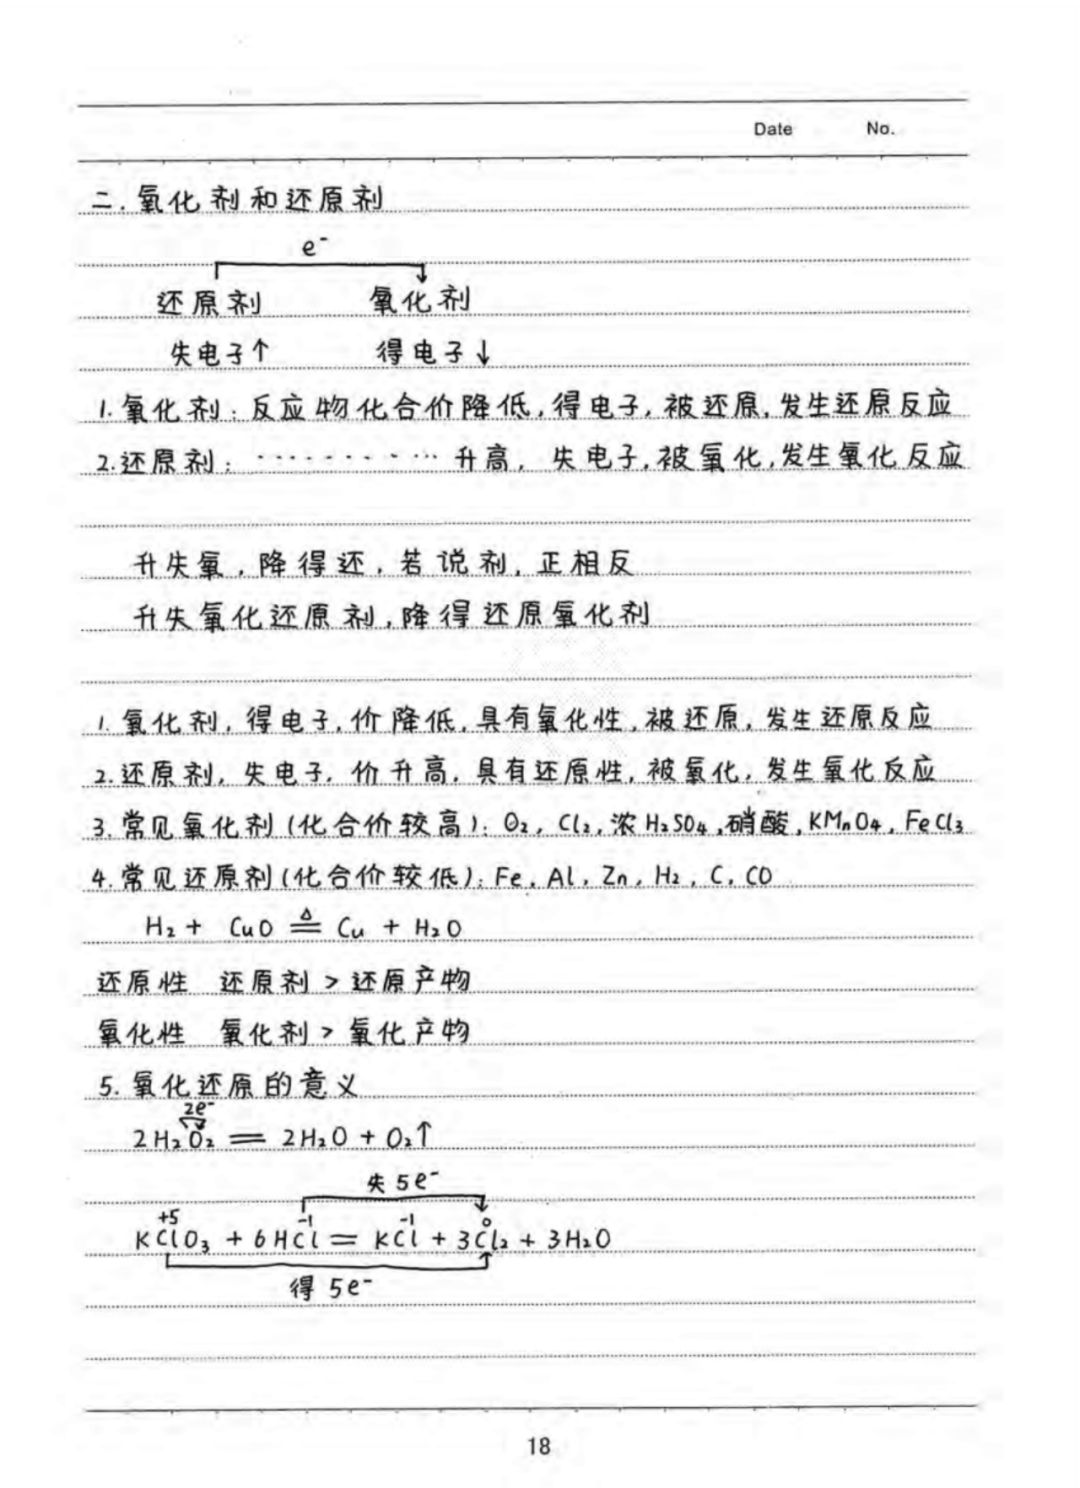 Date No.
二.氧化剂和还原剂
e⁻
还原剂 氧化剂
失电子↑ 得电子↓
1.氧化剂:反应物化合价降低,得电子,被还原,发生还原反应
2.还原剂:………… 升高, 失电子,被氧化,发生氧化反应
升失氧,降得还,若说剂,正相反
升失氧化还原剂,降得还原氧化剂
1.氧化剂,得电子,价降低,具有氧化性,被还原,发生还原反应
2.还原剂,失电子,价升高,具有还原性,被氧化,发生氧化反应
3.常见氧化剂(化合价较高):O₂,Cl₂,浓H₂SO₄,硝酸,KMnO₄,FeCl₃
4.常见还原剂(化合价较低):Fe,Al,Zn,H₂,C,CO
△
H₂ + CuO = Cu + H₂O
还原性 还原剂 > 还原产物
氧化性 氧化剂 > 氧化产物
5.氧化还原的意义
2e⁻
2H₂O₂ = 2H₂O + O₂↑
失5e⁻
+5 -1 -1 0
KClO₃ + 6HCl = KCl + 3Cl₂ + 3H₂O
得5e⁻
18